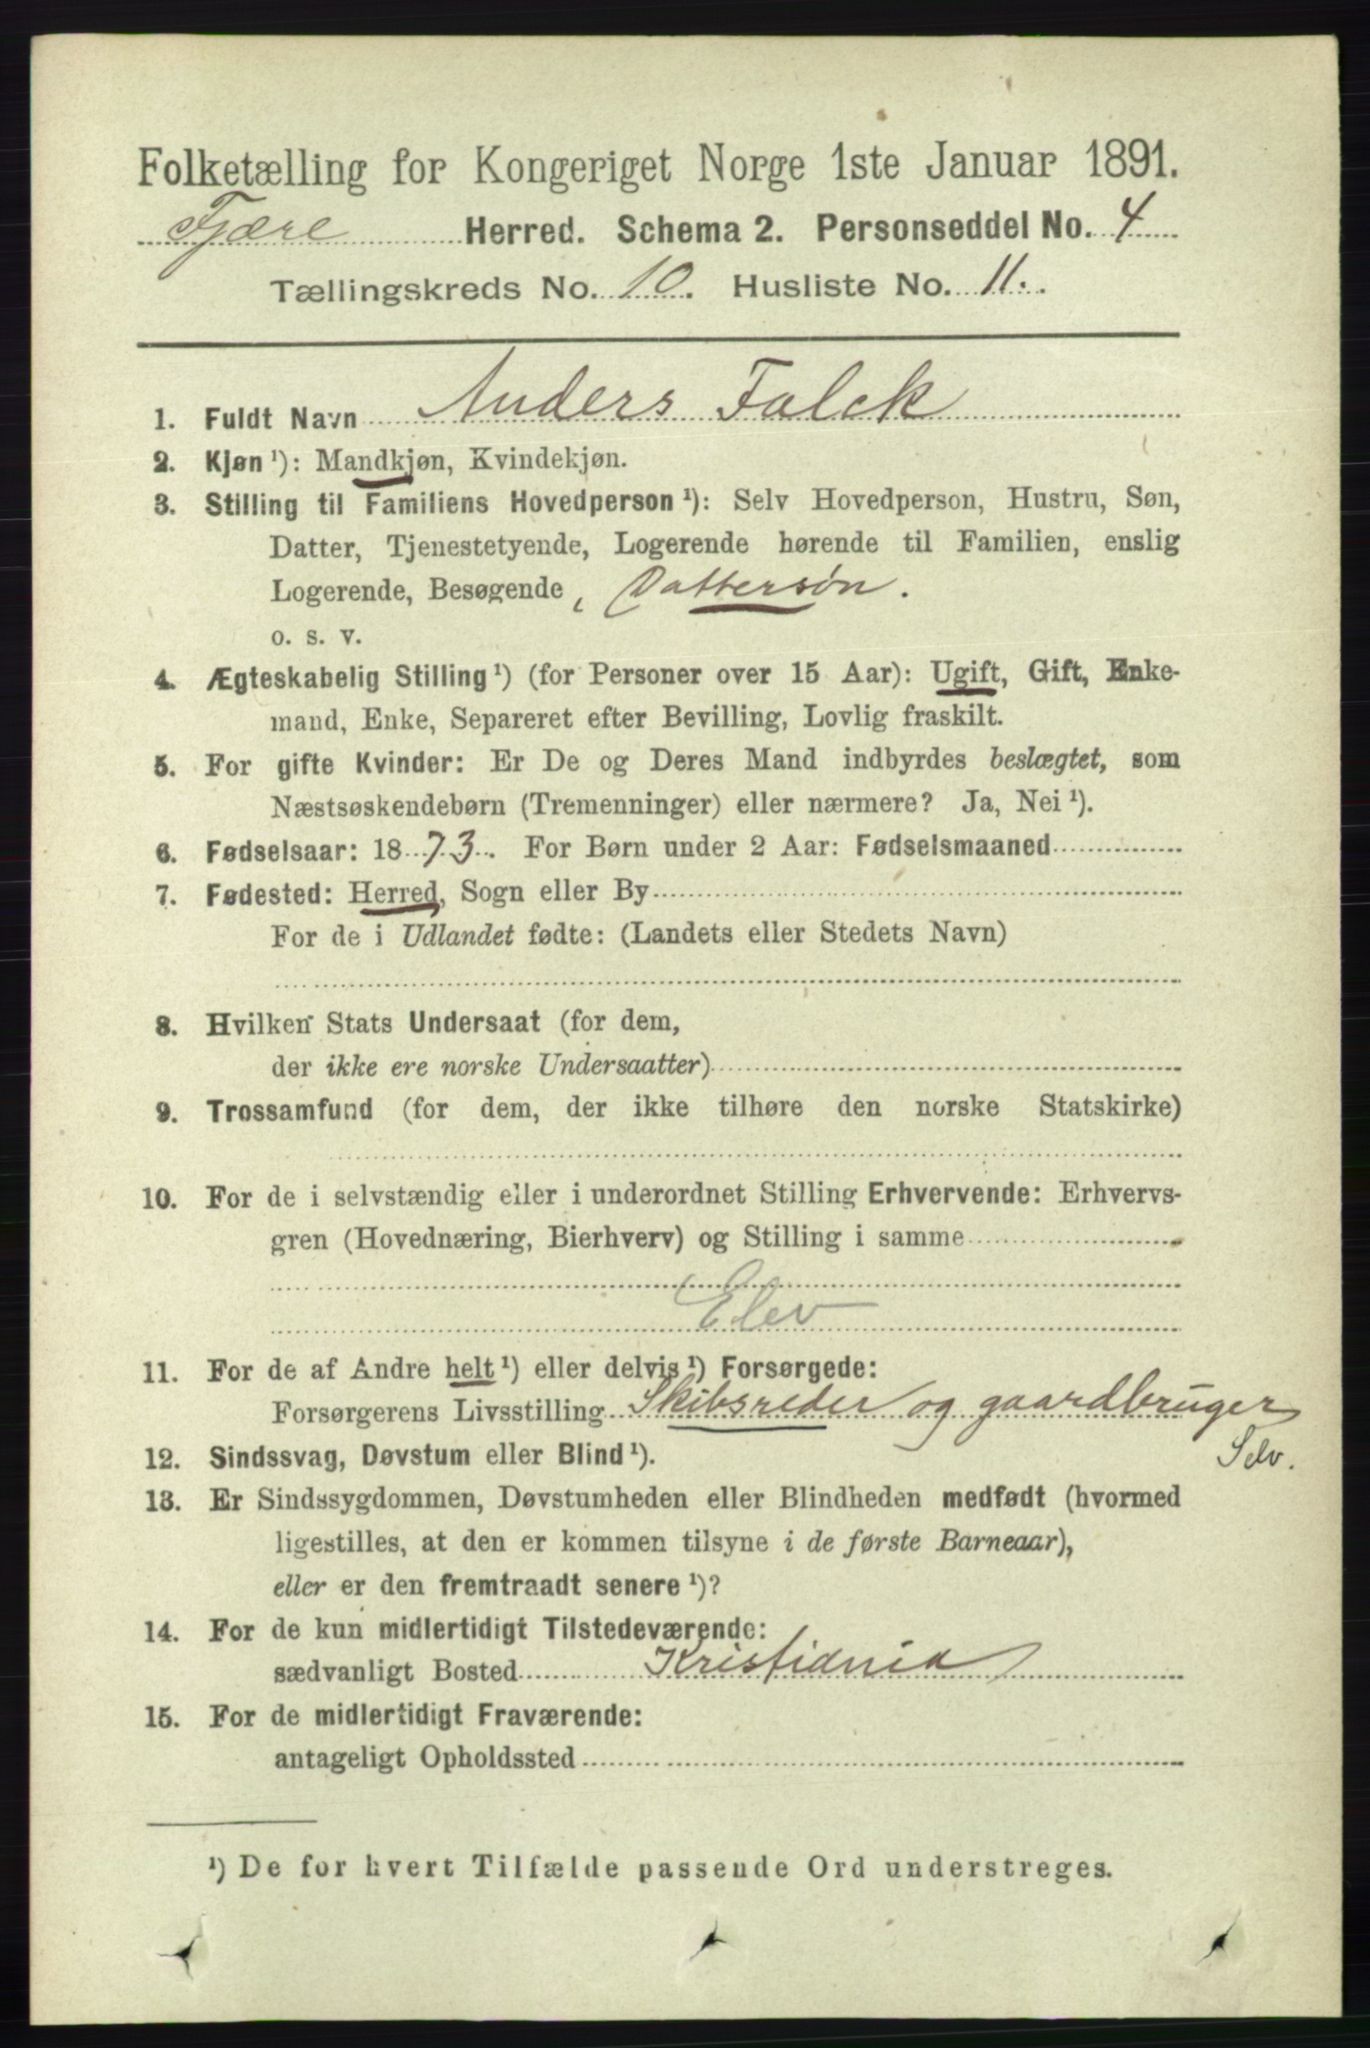 Folketælling for Kongeriget Norge 1ste Januar 1891.
Fjære Herred. Schema 2. Personseddel No. 4
Tællingskreds No. 10. Husliste No. 11.
1. Fuldt Navn Anders Falck
2. Kjøn¹): Mandkjøn, Kvindekjøn.
3. Stilling til Familiens Hovedperson¹): Selv Hovedperson, Hustru, Søn,
Datter, Tjenestetyende, Logerende hørende til Familien, enslig
Logerende, Besøgende, Dattersøn.
o. s. v.
4. Ægteskabelig Stilling¹) (for Personer over 15 Aar): Ugift, Gift, Enke-
mand, Enke, Separeret efter Bevilling, Lovlig fraskilt.
5. For gifte Kvinder: Er De og Deres Mand indbyrdes beslægtet, som
Næstsøskendebørn (Tremenninger) eller nærmere? Ja, Nei¹).
6. Fødselsaar: 1873. For Børn under 2 Aar: Fødselsmaaned
7. Fødested: Herred, Sogn eller By
For de i Udlandet fødte: (Landets eller Stedets Navn)
8. Hvilken Stats Undersaat (for dem,
der ikke ere norske Undersaatter)
9. Trossamfund (for dem, der ikke tilhøre den norske Statskirke)
10. For de i selvstændig eller i underordnet Stilling Erhvervende: Erhvervs-
gren (Hovednæring, Bierhverv) og Stilling i samme
Elev
11. For de af Andre helt¹) eller delvis¹) Forsørgede:
Forsørgerens Livsstilling Skibsreder og gaardbruger
Selv.
12. Sindssvag, Døvstum eller Blind¹).
13. Er Sindssygdommen, Døvstumheden eller Blindheden medfødt (hvormed
ligestilles, at den er kommen tilsyne i de første Barneaar),
eller er den fremtraadt senere¹)?
14. For de kun midlertidigt Tilstedeværende:
sædvanligt Bosted Kristiania
15. For de midlertidigt Fraværende:
antageligt Opholdssted
¹) De for hvert Tilfælde passende Ord understreges.